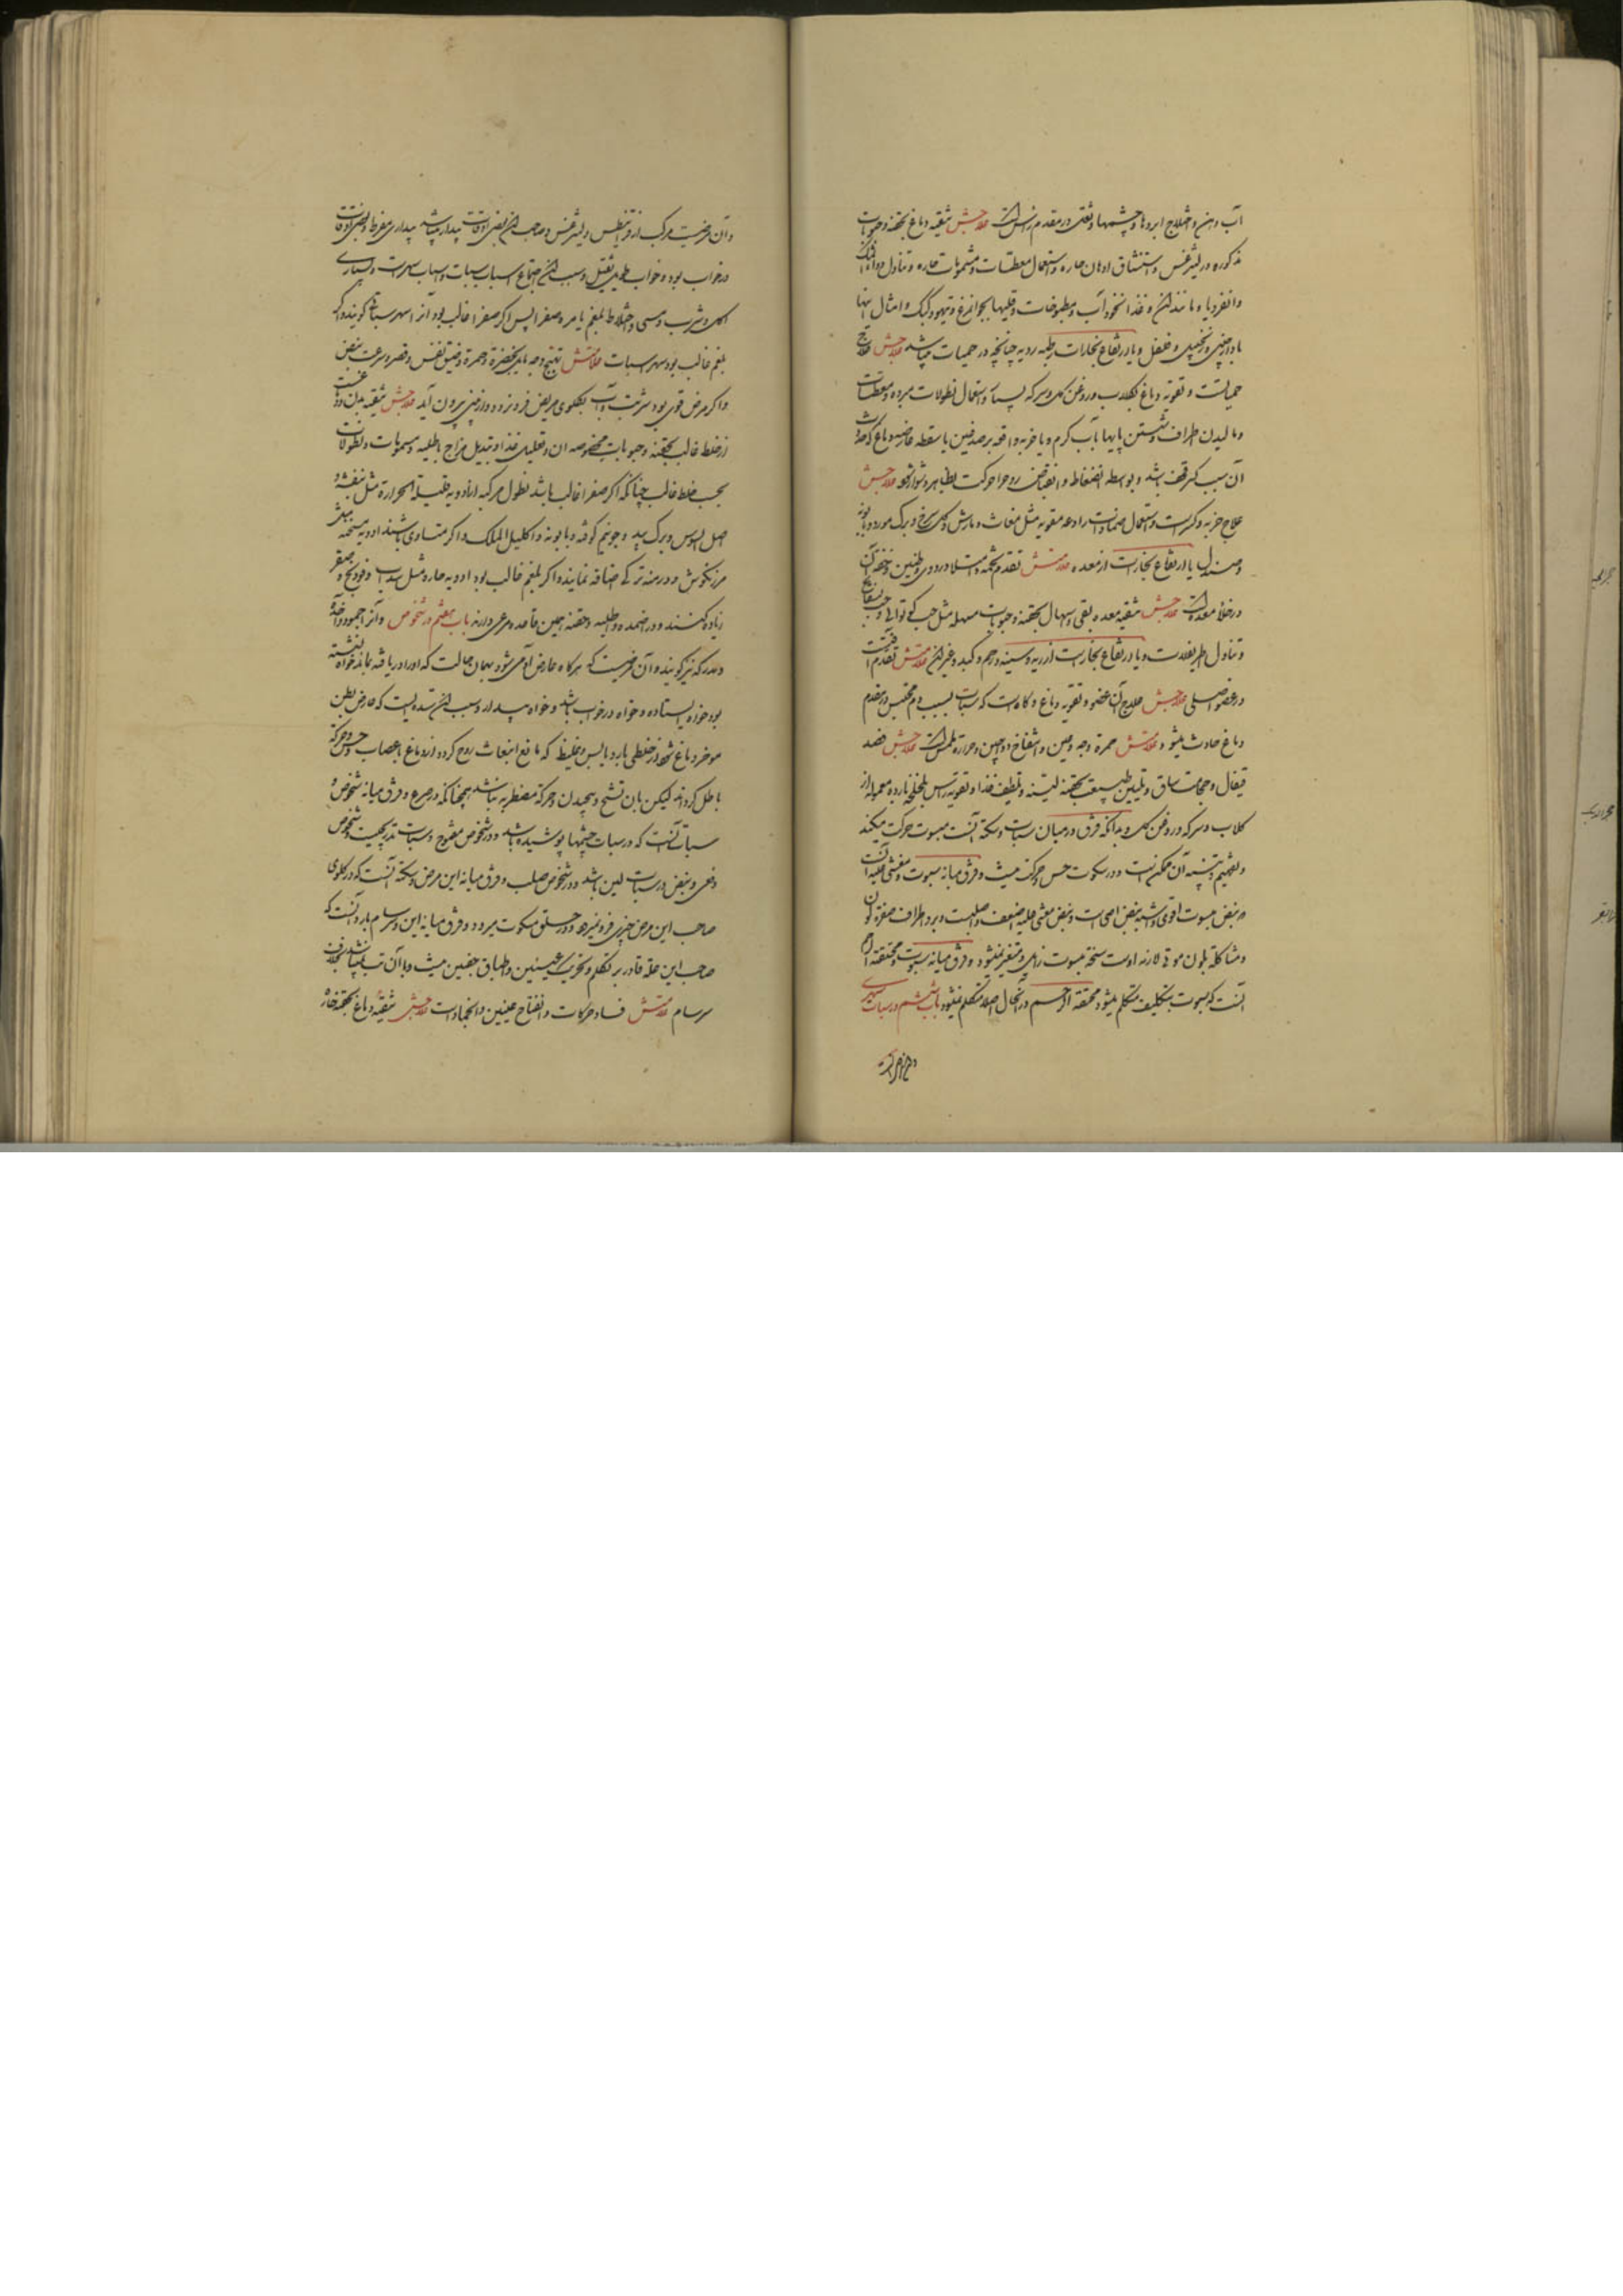 آب دهن و اختلاج ابروها و چشمها و ثقلی در مقدم راس است علاجش تنقیه دماغ بحقنه و حبوبات
مذکوره در لیثرغس و استنشاق ادهان حاره و استعمال معطسات و مشمومات حاره و تناول دواء المسک
وانقردیا و مانند آن و غذا نخودآب و مطبوخات و قلیها بجوانمرغ و تیهو و کبک و امثال اینها
با دارچینی و زنجبیل و فلفل و یا ارتفاع بخارات رطبه ردیه چنانچه در حمیات میباشد علاجش علاج
حمیاتست و تقویه دماغ بکلاب و روغن کل و سرکه بسیار و استعمال نطولات مبرده و معطسات
و مالیدن اطراف و شستن پایها بآب کرم و یا ضربه واقعه بر صدغین یا سقطه عارضه دماغ که حدوث
آن سبب کسر قحف باشد و بواسطه انضغاط و انقباض روح را حرکت بظاهر دشوار شود علاجش
علاج ضربه و کسرست و استعمال ضمادات رادعه مقویه مثل مغاث و ماش و کل سرخ و برک مورد و بابونه
و صندل یا ارتفاع بخارست از معده علامتش تقدم تخمه و امتلا و دردوی و طنین و خفه آن
در خلاء معده است علاجش تنقیه معده بقی و اسهال بحقنه و حبوبات مسهله مثل حب قوقایا و حب
و تناول اطریفلات و یا ارتفاع بخارست از ریه و سینه و رحم و کبد و غیر آن علامتش تقدم آفتست
در عضو اصلی علاجش علاج آن عضو و تقویه دماغ و کاه است که سبات بسبب دم محتبس در مقدم
دماغ حادث میشود علامتش حمرة وجه و عین و انتفاخ وداجین و حرارة ملمس است علاجش فصد
قیفال و حجامت ساق و تلیین طبیعت بحقنه لینه و تلطیف غذا و تقویه راس بلخلخه بارده معموله از
کلاب و سرکه و روغن کل و بدانکه فرق در میان سبات و سکته آنست مسبوت حرکت میکند
و تفهیم و تنبیه آن ممکن است و در سکوت حس و حرکت نیست و فرق میانه مسبوت و مغشی علیه آنست
که نبض مسبوت اقوی و اشبه بنبض اصحاست و نبض مغشی علیه اضعف و اصلبست و برد اطراف و صفرة لون
و مشاکلة بلون موتی لازمه اوست سحنه مسبوت زمانی متغیر نمیشود و فرق میانه مسبوت و مختنقه رحم
آنست که مسبوت بتکلیف متکلم میشود و مختنقه الرحم در آنحال اصلا متکلم نمیشود باب ششم در سبات سهری
و آن مرضیست مرکب از قرانیطس و لیثرغس و صاحب آن بعضی اوقات بیدار میباشد بیداری مفرط و بعضی اوقات
در خواب بود و خواب طویل ثقیل و سبب آن اجتماع اسباب سبات و اسباب سهرست و بسیاری
اکل و شرب و مسی و اختلاط بلغم با مره صفرا پس اکر صفرا غالب بود آنرا سهر سباتی کویند و اکر
بلغم غالب بود سهر سبات علامتش تهیج وجه مایل بخضرة و حمرة و ضیق نفس و قصر و سرعت نبض
و اکر مرض قوی بود شربت و آب بکلوی مریض فرو نرود و از بینی بیرون آید علاجش تنقیه بدن و دماغست
از خلط غالب بحقنه و حبوبات مخصوصه آن و تقلیل غذا و تبدیل مزاج باطلیه و مشمومات و نطولات
بحسب خلط غالب چنانکه اکر صفرا غالب باشد نطول مرکبه از ادویه قلیلة الحرارة مثل بنفشه و
اصل السوس و برک بید و جو نیم کوفته و بابونه و اکلیل الملک و اکر متساوی باشند ادویه مسخنه مثل
مرزنکوش و درمنه ترکی اضافه نمایند و اکر بلغم غالب بود ادویه حاره مثل سداب و فودنج و صعتر
زیاده کنند و در اضمده و اطلیه و حقنه همین قاعده مرعی دارند باب هفتم در شخوص و آنرا جمود و اخذه
و مدرکه نیز کویند و آن مرضیست که هرکاه عارض آدمی شود بهمان حالت که او را دریافته بماند خواه نشسته
بود خواه ایستاده و خواه در خواب باشد و خواه بیدار و سبب آن سده ایست که عارض بطن
موخر دماغ شود از خلطی بارد یابس و غلیظ که مانع انبعاث روح کردد از دماغ باعصاب و حس و حرکة
باطل کرداند لیکن بان تشنج و پیچیدن و حرکة مضطربه نباشد همچنانکه در صرع و فرق میانه شخوص و
سبات آنست که در سبات چشمها پوشیده باشد و در شخوص مفتوح و سبات بتدریجست و شخوص
دفعی و نبض در سبات لین باشد و در شخوص صلب و فرق میانه این مرض و سکته آنست که در کلوی
صاحب این مرض چیزی فرو نمیرود و در حلق مسکوت میرود و فرق میانه این و سرسام بارد آنست که
صاحب این علة قادر بر تکلم و تحریک عینین و اطباق جفنین نیست و با آن تب نمیباشد بخلاف
سرسام علامتش فساد حرکات و انفتاح عینین و انجماد است علاجش تنقیه دماغ بحقنه حاره